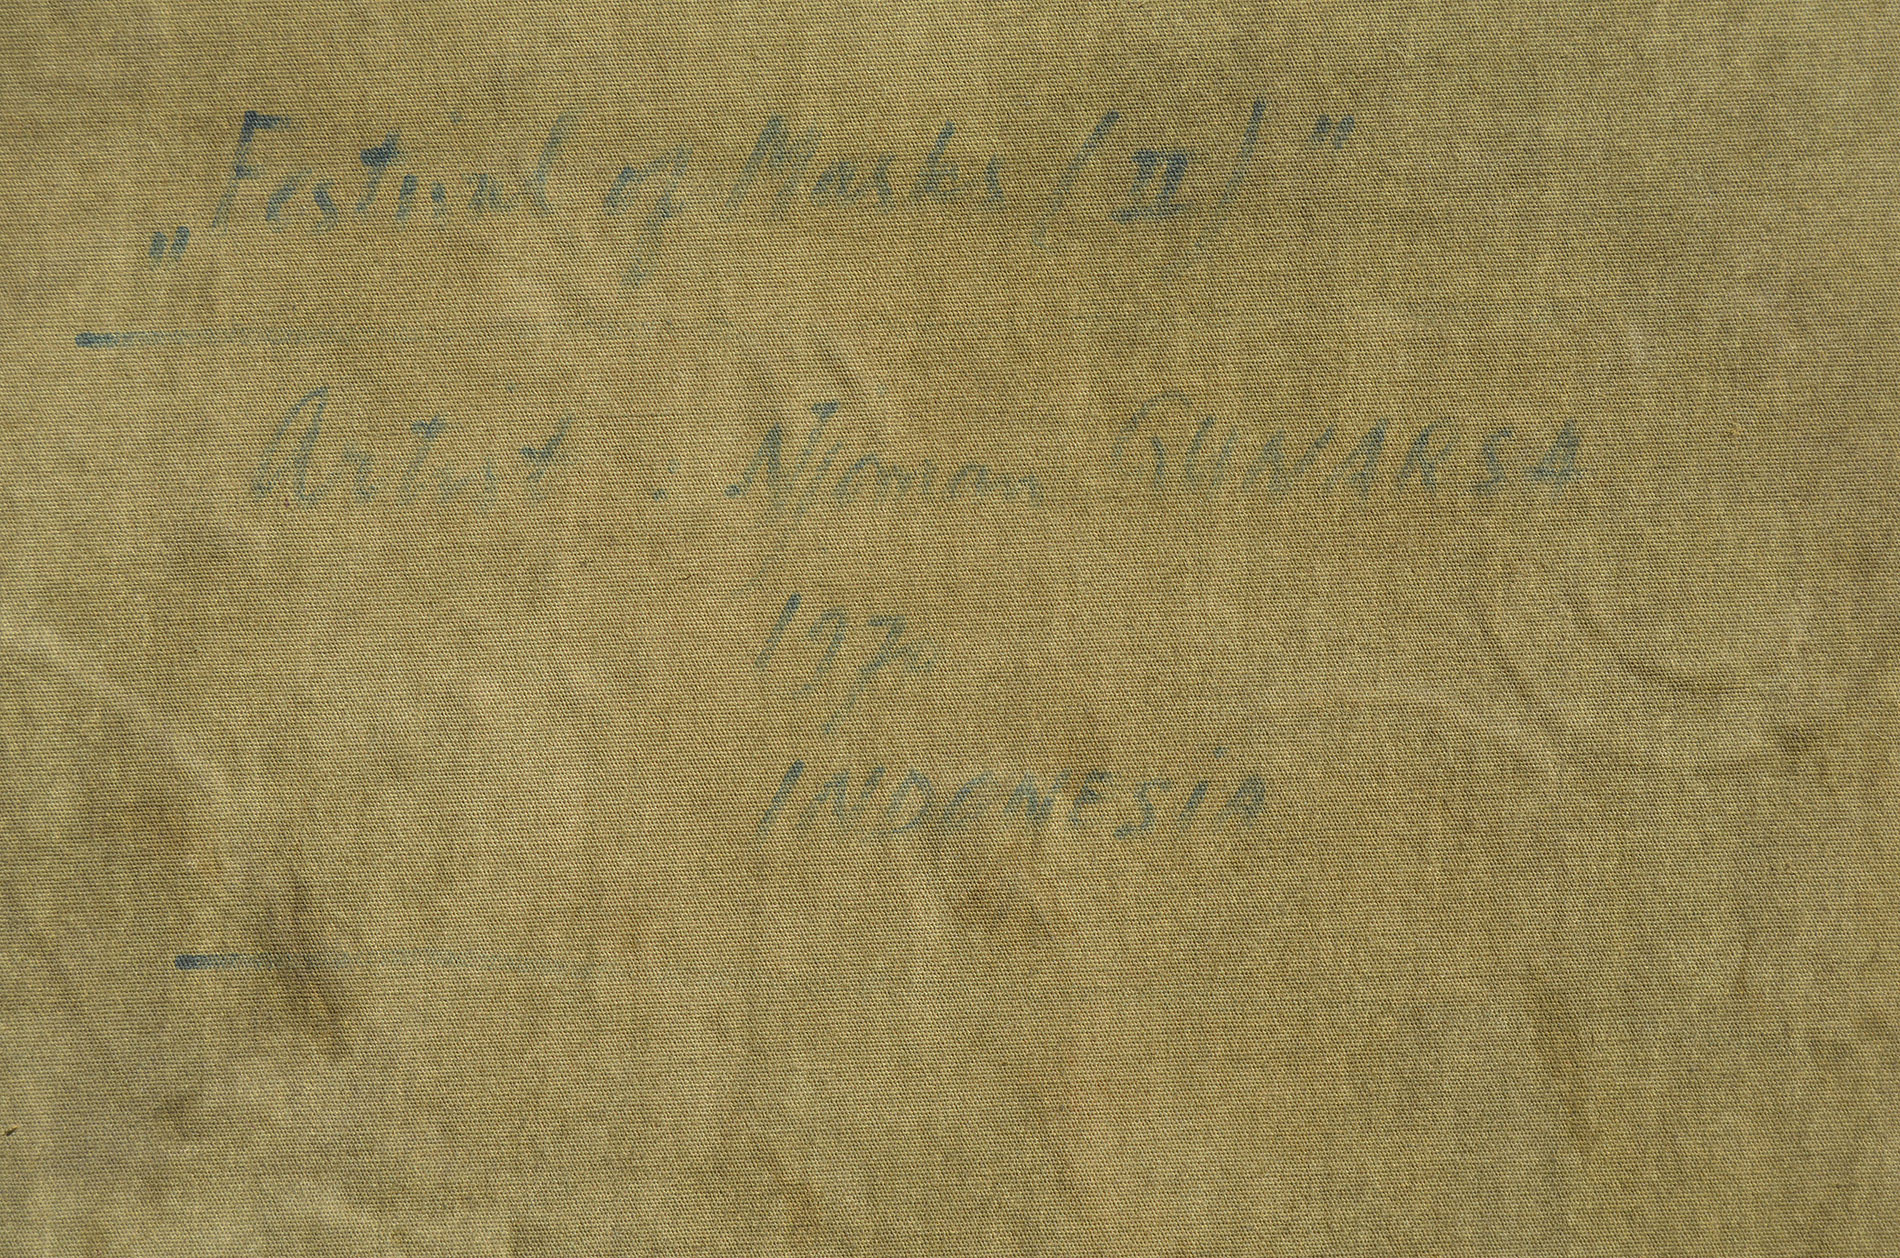 „Festival of Masks (II)"
Artist : Njoman GUNARSA
INDONESIA